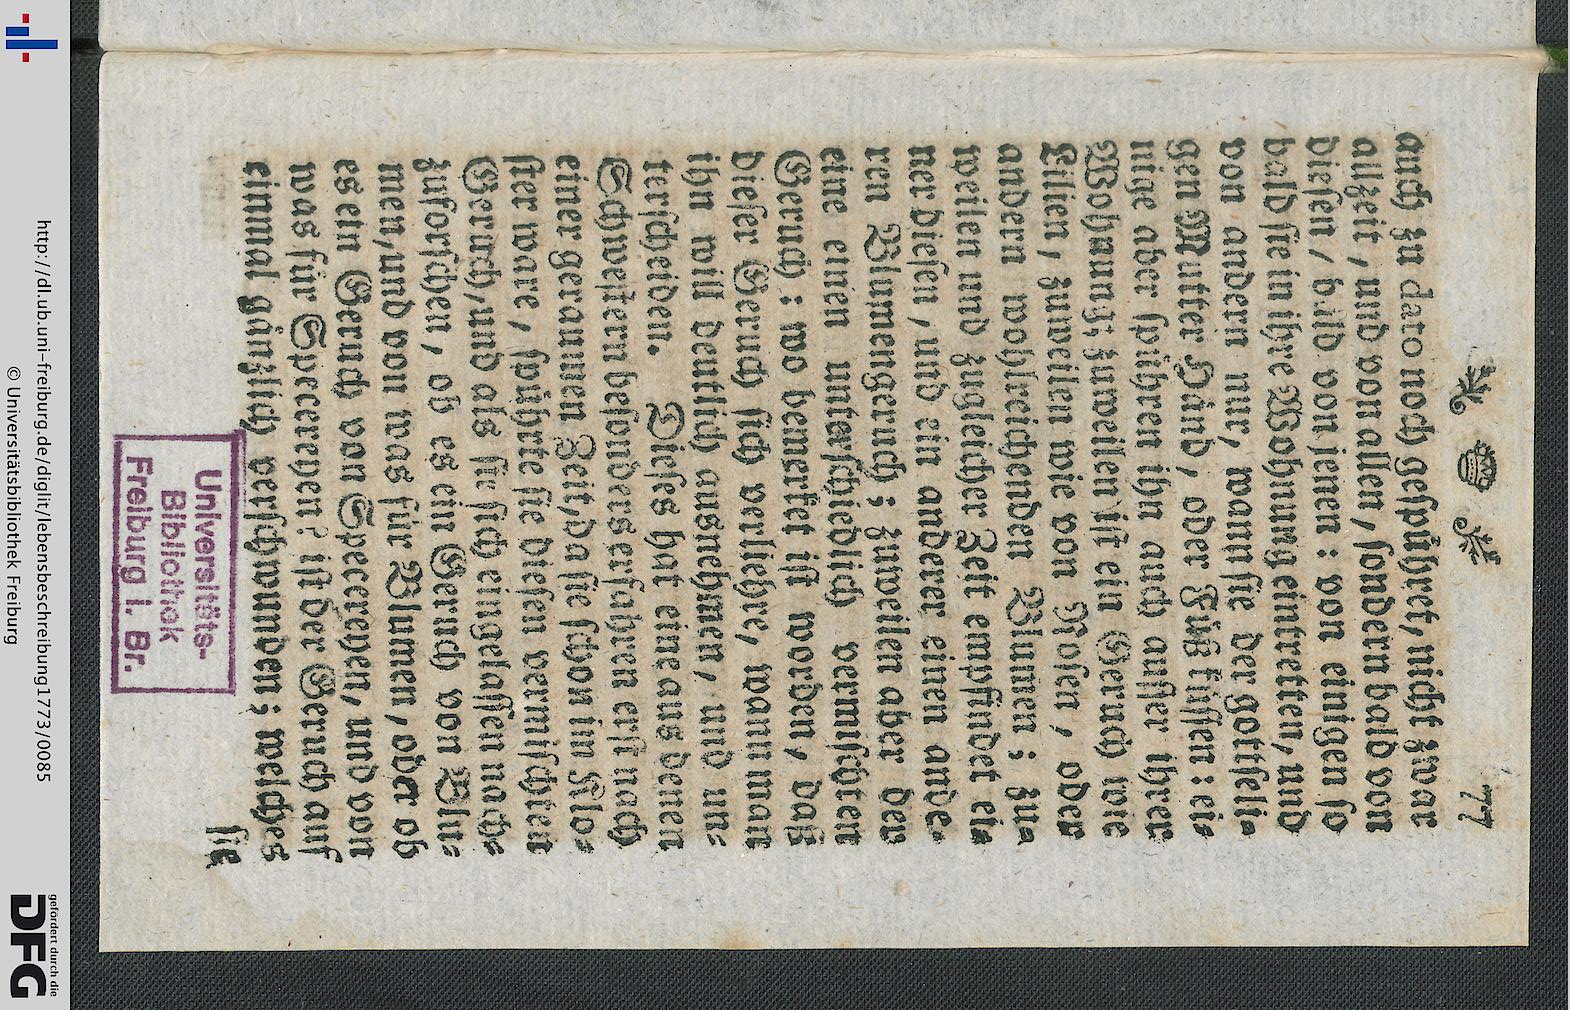 77
auch zu dato noch gespühret, nicht zwar
alzeit, und von allen, sondern bald von
diesen, bald von jenen: von einigen so
bald sie in ihre Wohnung eintretten, und
von andern nur, wann sie der gottseli-
gen Mutter Händ, oder Füß küssen: ei-
nige aber spühren ihn auch ausser ihrer
Wohnung; zuweilen ist ein Geruch wie
Lilien, zuweilen wie von Rosen, oder
andern wohlreichenden Blumen; zu-
weilen und zugleicher Zeit empfindet ei-
ner diesen, und ein anderer einen ande-
ren Blumengeruch; zuweilen aber der
eine einen unterschiedlich vermischten
Geruch: wo bemerket ist worden, daß
dieser Geruch sich verliehre, wann man
ihn will deutlich ausnehmen, und un-
terscheiden. Dieses hat eine aus denen
Schwestern besonders erfahren erst nach
einer geraumen Zeit, da sie schon im Klo-
ster ware, spührte sie diesen vermischten
Geruch, und als sie sich eingelassen nach-
zuforschen, ob es ein Geruch von Blu-
men, und von was für Blumen, oder ob
es ein Geruch von Specereyen, und von
was für Specereyen? ist der Geruch auf
einmal gänzlich verschwunden; welches
sie
Universitäts-
Bibliothek
Freiburg i. Br.
http://dl.ub.uni-freiburg.de/diglit/lebensbeschreibung1773/0085
© Universitätsbibliothek Freiburg
gefördert durch die
DFG